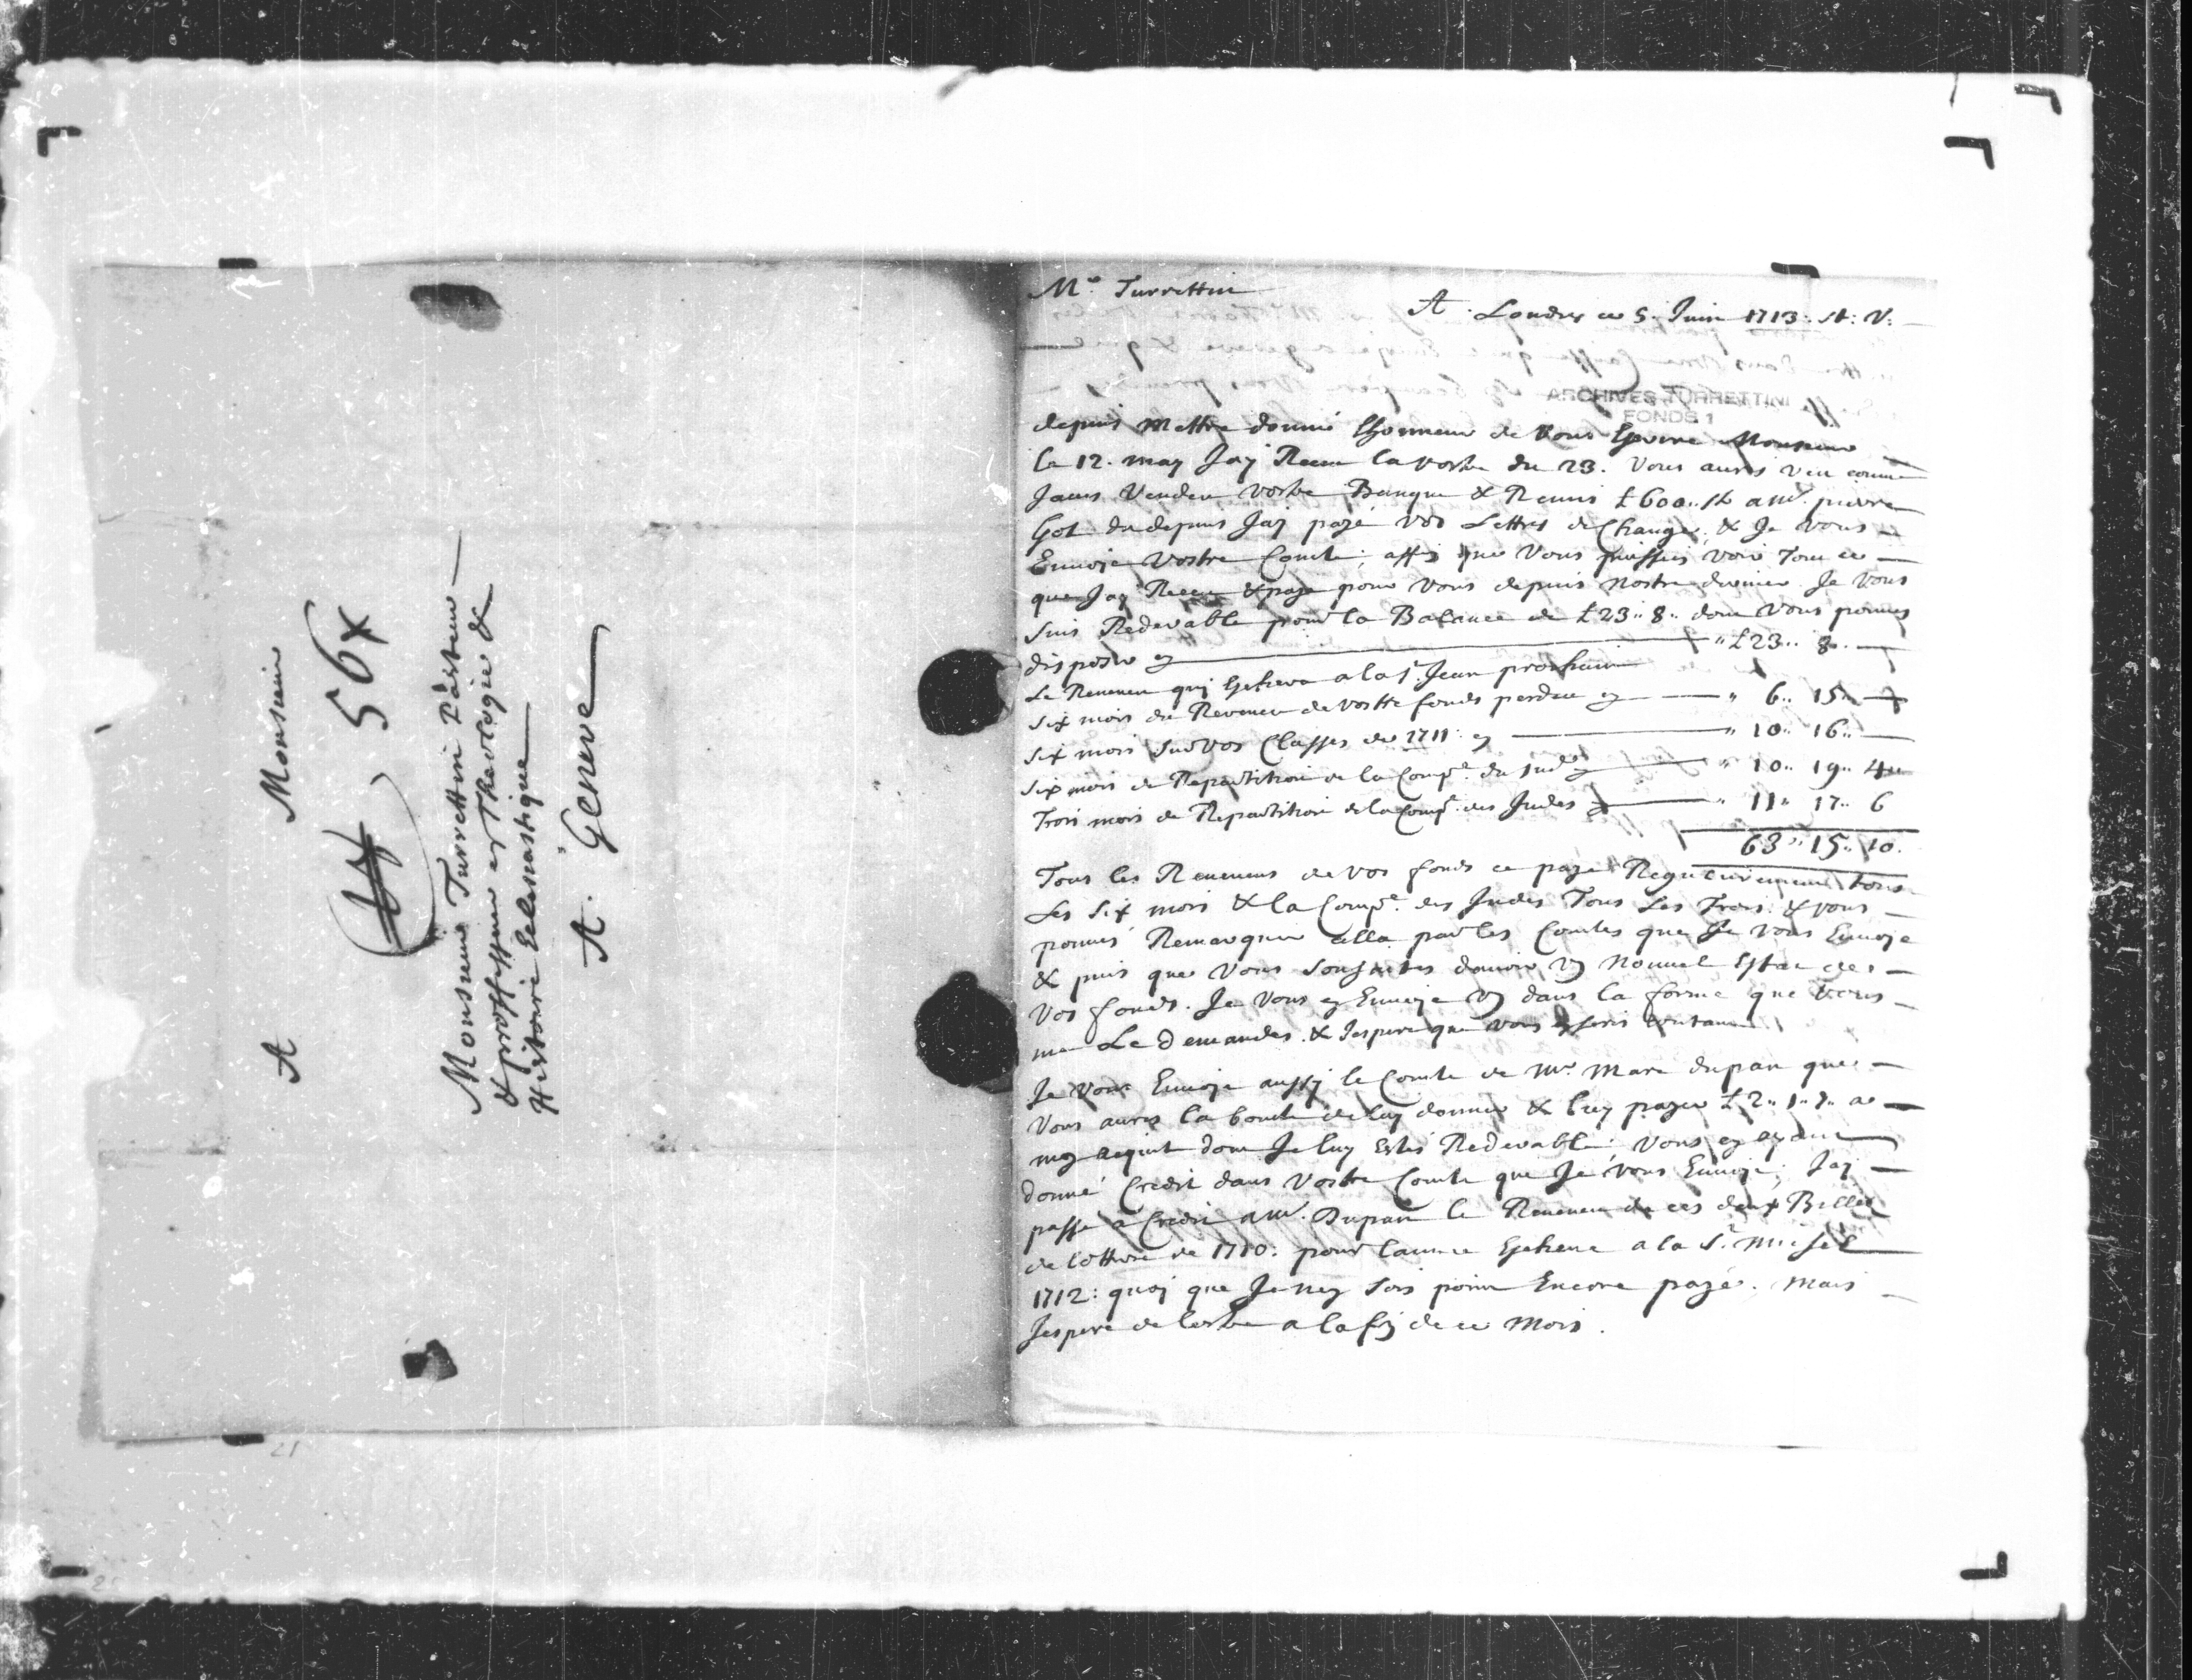 A Monsieur
56x
Monsieur Turrettin Pasteur
& proffesseur en Theologie &
Histoire Eclesiastique
A Geneve
Mr Turrettin
A Londres ce 5 Juin 1713: st: V:
ARCHIVES TURRETTINI
FONDS 1
depuis mettre donné lhonneur de vous Escrire Monsieur
le 12. may Jay Receu la vostre du 23. Vous aures veu comme
Javes Vendeu vostre Banque & Remis £600.. st a Mr. pierre
Got du depuis Jaj payé vos Lettres de Change, & Je vous
Envoje Vostre Comte; affin que Vous puissies voir Tout ce
que Jay Receu & paye pour Vous depuis Nostre dernier Je Vous
suis Redevable pour la Balance de £23.. 8.. dont Vous pouves
disposer cy £23.. 8.
Le Reveneu quj Eschera a la St. Jean prochain
six mois du Reveneu de vostre fonds perdeu cy 6.. 15..
six mois sur vos Classes de 1711: cy 10.. 16..
six mois de Repartition de la Compe. du sud cy 10.. 19.. 4
Trois mois de Repartition de la Compe. des Indes cy 11.. 17.. 6
63.. 15.. 10.
Tous les Reveneus de vos fonds ce paye Regulierement tous
Les Six mois & la Compe. des Indes Tous Les Trois. & vous
pouves Remarquer cella par les Comtes que Je vous Envoje
& puis que Vous souhaites davoir un Nouvel Estat de
Vos fonds. Je Vous en Envoje un dans la forme que vous
me Le Demandes. & Jespere que vous en seres contant
Je vous Envoje aussy le Comte de Mr. Marc dupan que
Vous aures la bonté de luy donner & luy payer £2.. 1.. 7.. a
moy acquit dont Je luy Estés Redevable; vous en ayant
donné Credit dans Vostre Comte que Je vous Envoje; Jaj
passé a Credit a Mr. Dupan le Reveneu de ces deux Billes
de lottrie de 1710: pour lannee Escheue a la St. Michel
1712: quoj que Je nen sois point Encore payé. Mais
Jespere de lestre a la fin de ce Mois.